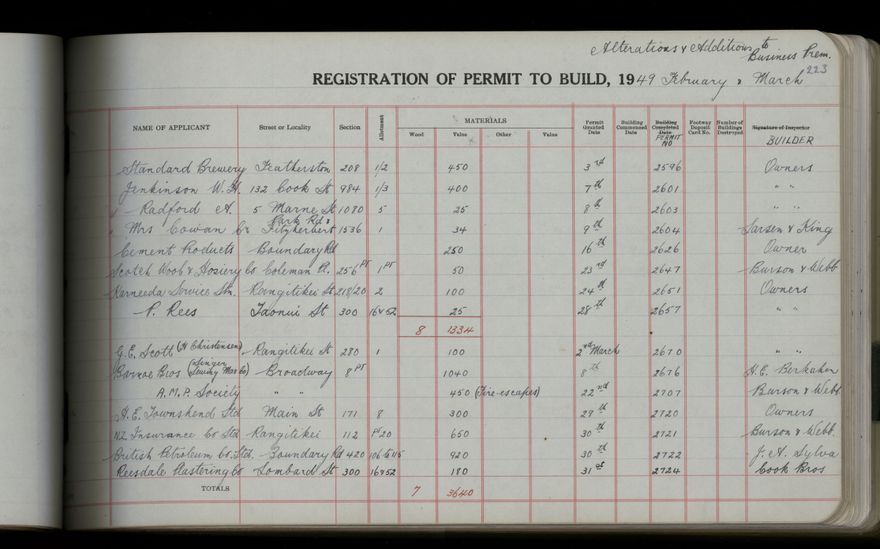 Alterations & Additions to
Business Prem.
REGISTRATION OF PERMIT TO BUILD, 1949 February & March 223
NAME OF APPLICANT Street or Locality Section Allotment MATERIALS Wood Value Other Value Permit Granted Date Building Commenced Date Building Completed Date PERMIT NO Footway Deposit Card No. Number of Buildings Destroyed Signature of Inspector BUILDER
Standard Brewery Featherston 208 1/2 450 3rd 2596 Owners
Jenkinson W.H. 132 Cook St 984 1/3 400 7th 2601 " "
Radford A. 5 Marne St 1080 5 25 8th 2603 " "
Mrs Cowan Cr Park Rd & Fitzherbert 1536 1 34 9th 2604 Larsen & King
Cement Products Boundary Rd 250 16th 2626 Owner
Scotch Wool & Hosiery Co Coleman Pl. 256 PT 1 PT 50 23rd 2647 Burson & Webb
Service Stn. Rangitikei St 218/20 2 100 24th 2651 Owners
P. Rees Taonui St 300 16 & 52 25 28th 2657 " "
8 1334
G.E. Scott (H Christensen) Rangitikei St 280 1 100 2nd March 2670 " "
Barroe Bros (Singer Sewing Mac Co) Broadway 8 PT 1040 8th 2676 H.E.
A.M.P. Society " " 450 (Fire-escapes) 22nd 2707 Burson & Webb
H.E. Townshend Ltd Main St 171 8 300 29th 2720 Owners
N.Z. Insurance Co Ltd Rangitikei 112 Pt 20 650 30th 2721 Burson & Webb.
British Petroleum Co. Ltd. Boundary Rd 420 106 to 115 920 30th 2722 J.A. Sylva
Reesdale Plastering Co Lombard St 300 16 & 52 180 31st 2724 Cook Bros
TOTALS 7 3640